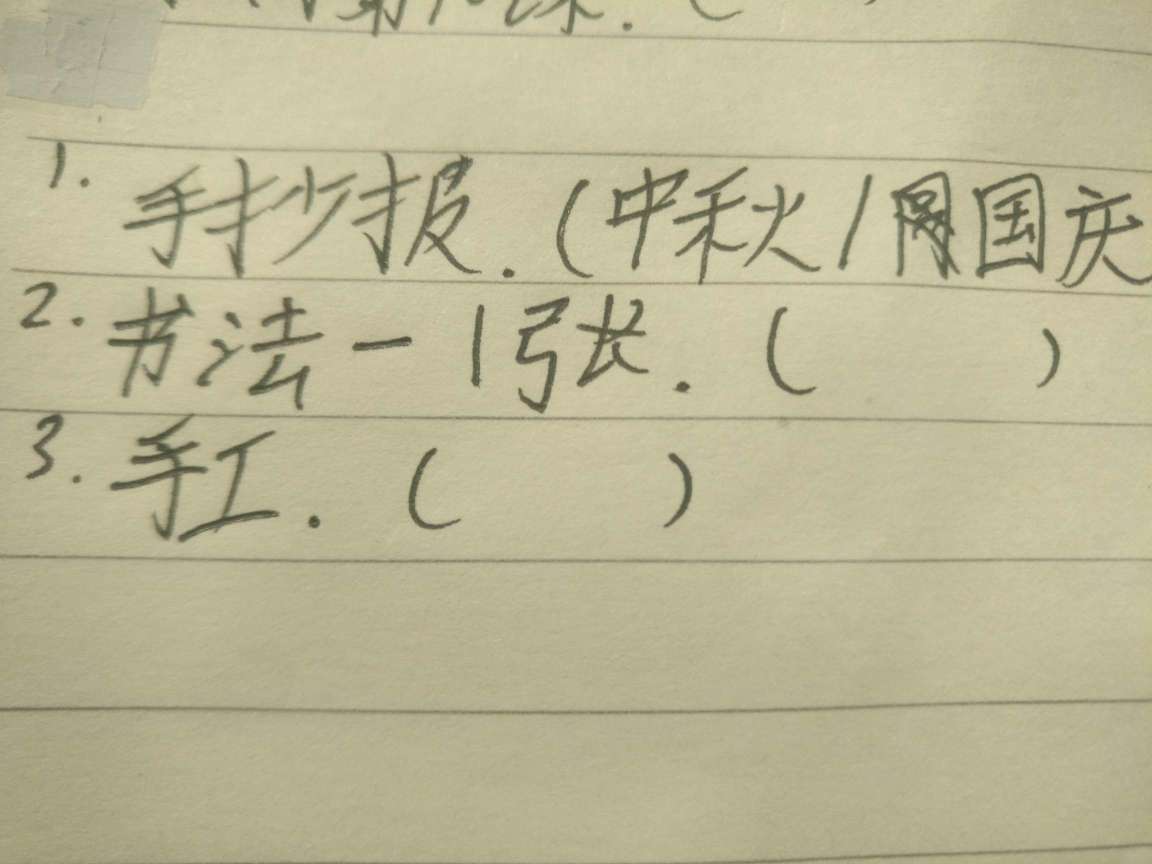 课.(
1. 手抄报.(中秋/国庆
2. 书法-1张.( )
3. 手工.( )